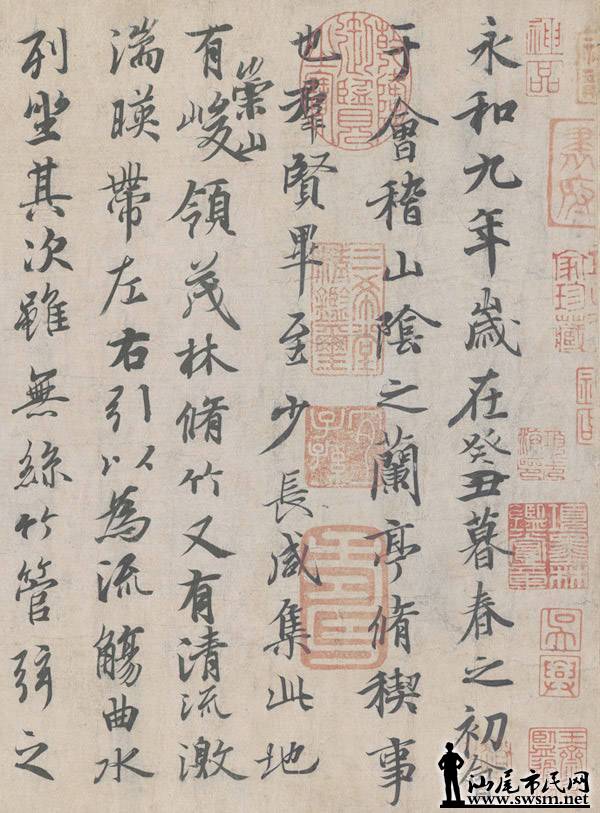 永和九年歲在癸丑暮春之初會
于會稽山陰之蘭亭脩稧事
也羣賢畢至少長咸集此地
有崇山峻領茂林脩竹又有清流激
湍暎帶左右引以為流觴曲水
列坐其次雖無絲竹管弦之
神品
家珍藏
三希堂精鑑璽
宜子孫
吳興
汕尾市民网
www.swsm.net